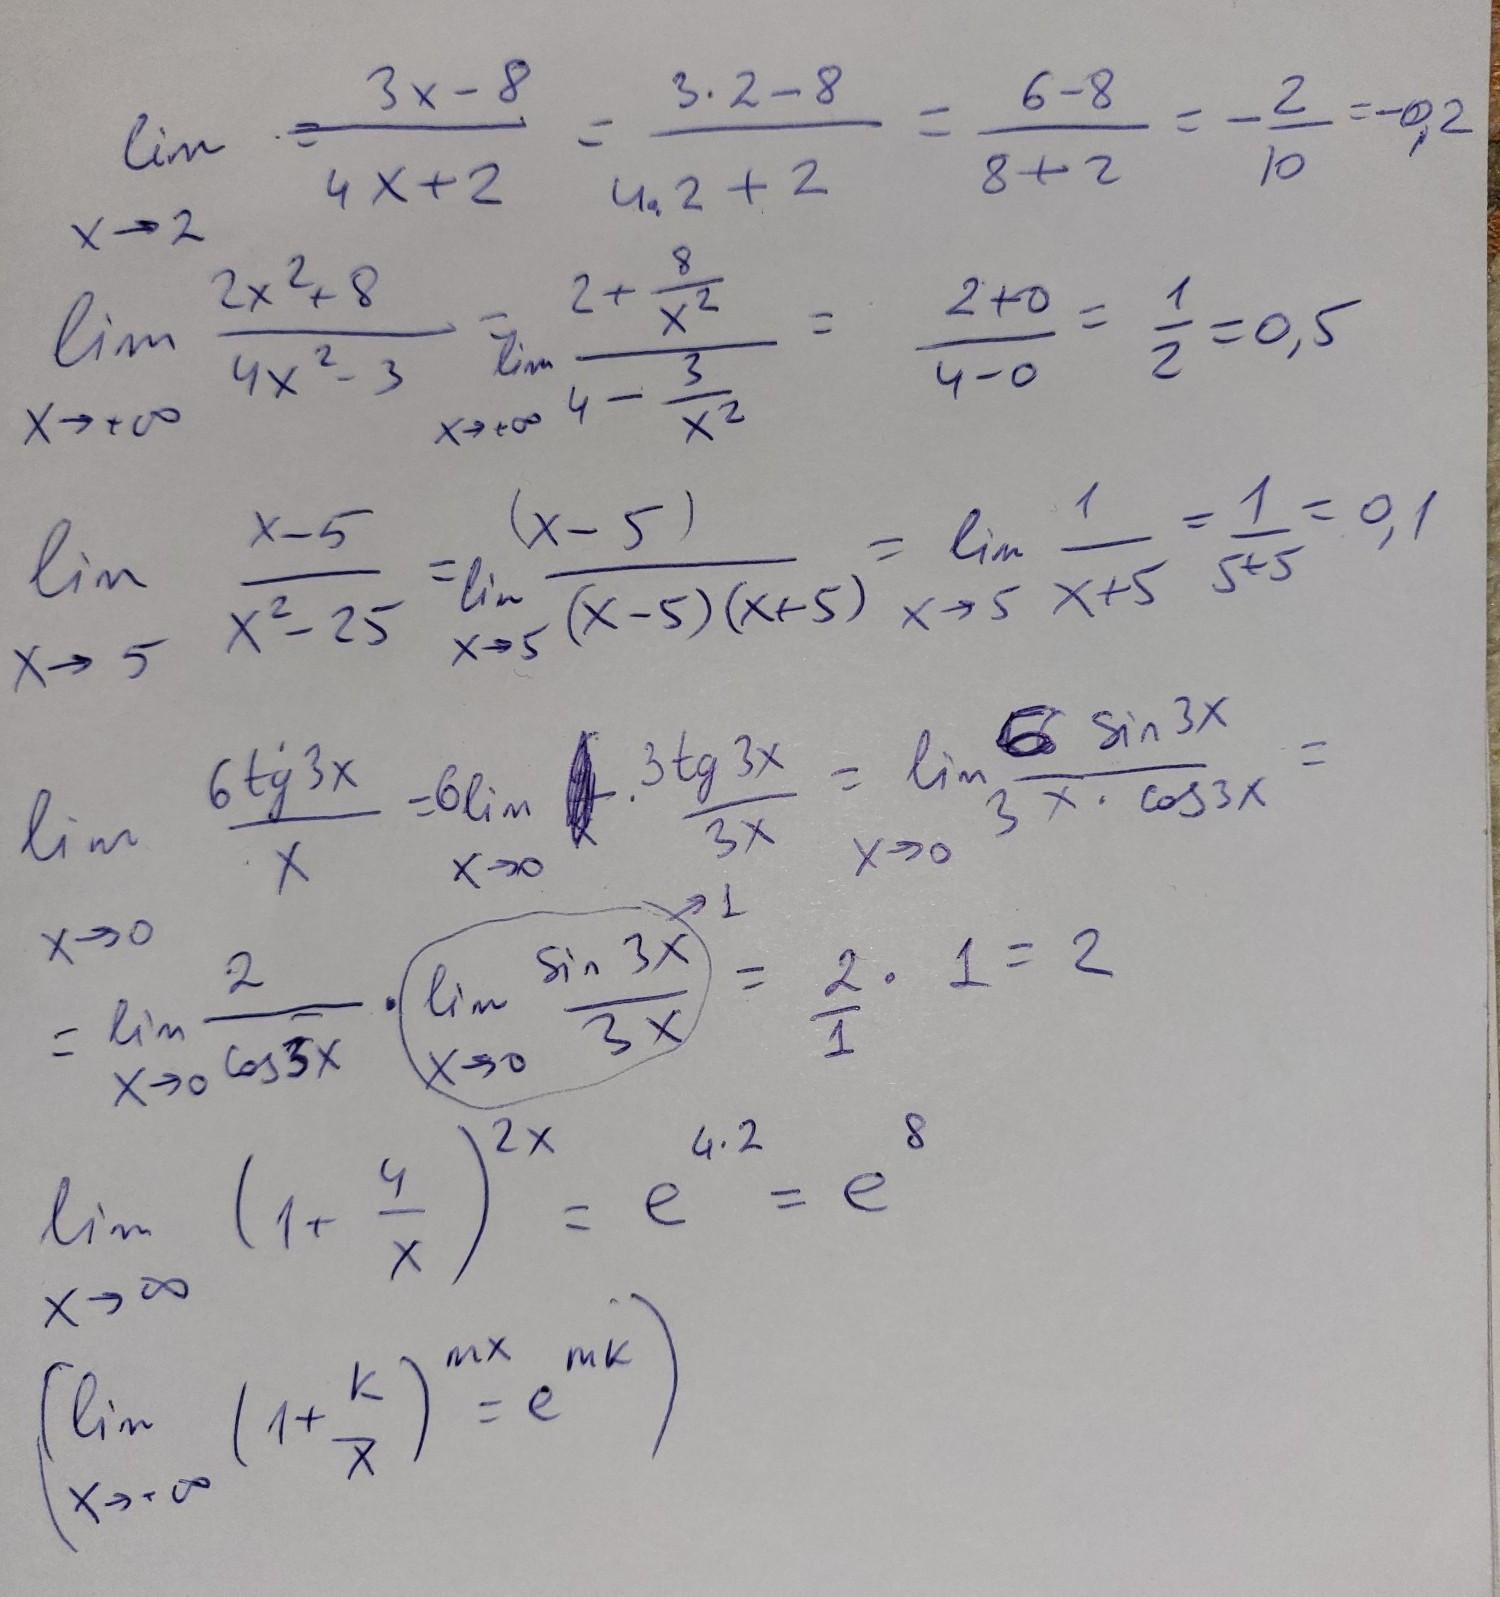 lim x→2 = (3x-8)/(4x+2) = (3·2-8)/(4·2+2) = (6-8)/(8+2) = -2/10 = -0,2
lim x→+∞ (2x²+8)/(4x²-3) = lim x→+∞ (2+8/x²)/(4-3/x²) = (2+0)/(4-0) = 1/2 = 0,5
lim x→5 (x-5)/(x²-25) = lim x→5 (x-5)/((x-5)(x+5)) = lim x→5 1/(x+5) = 1/(5+5) = 0,1
lim x→0 6tg3x/x = 6lim x→0 · 3tg3x/3x = lim x→0 6 sin3x/(3x·cos3x) =
= lim x→0 2/cos3x · lim x→0 sin3x/3x →1 = 2/1 · 1 = 2
lim x→∞ (1+4/x)^2x = e^4·2 = e^8
(lim x→+∞ (1+k/x)^mx = e^mk)